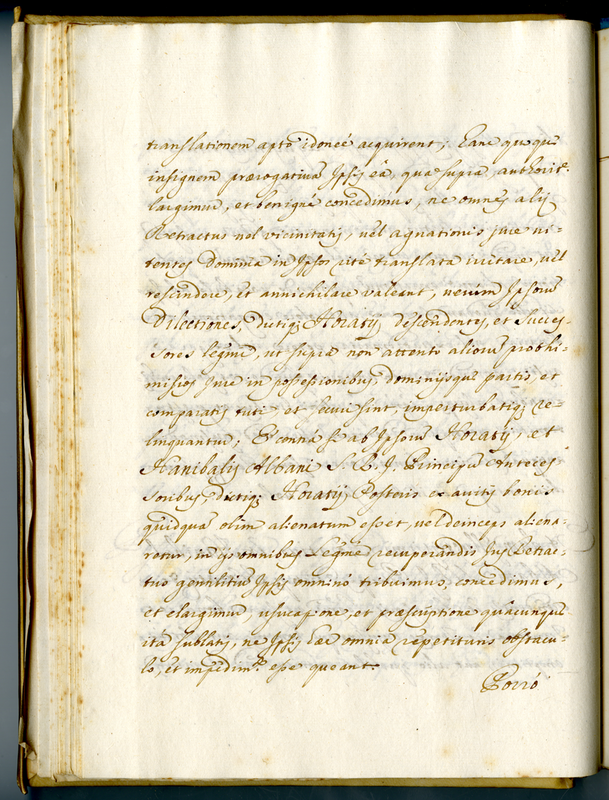 translationem apto idoneé acquirent; Eamquoque
insignem prærogativã Ipsis eâ, qua supra, authorit.ᵉ
largimur, et benigne concedimus, ne omnes alij
Retractus vel vicinitatis, vel agnationis jure u-
tentes Dominia in Ipsos rité translata irritare, vel
rescindere, et annichilare valeant, verùm Ipsorũ
Dilectiones, dictiq; Horatij descendentes, et Succes-
sores legmi, ut supra non attento aliorũ prothi-
miseos jure in possessionibus, dominijsque partis, et
comparatis tuti et securi sint, imperturbatiq; re-
linquantur; Et contrà si ab Ipsorũ Horatij, et
Hanibalis Albani S. R. I. Principũ Anteces-
soribus, dictiq; Horatij Posteris ex avitis bonis
quidquã olim alienatum esset, vel deinceps aliena-
retur, in ijs omnibus Legme recuperandis Jus Retrac-
tus gentilitiũ Ipsis omninò tribuimus, concedimus,
et elargimur, usucapione, et præscriptione quacunque
ita sublatis, ne Ipsis hæc omnia repetituris obstacu-
lo, et impedim.ᵗᵒ esse queant.
Porrò